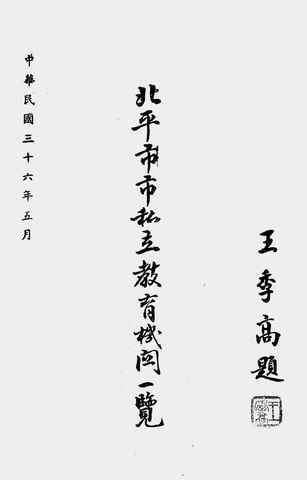 王季高題
北平市市私立教育機関一覽
中華民國三十六年五月